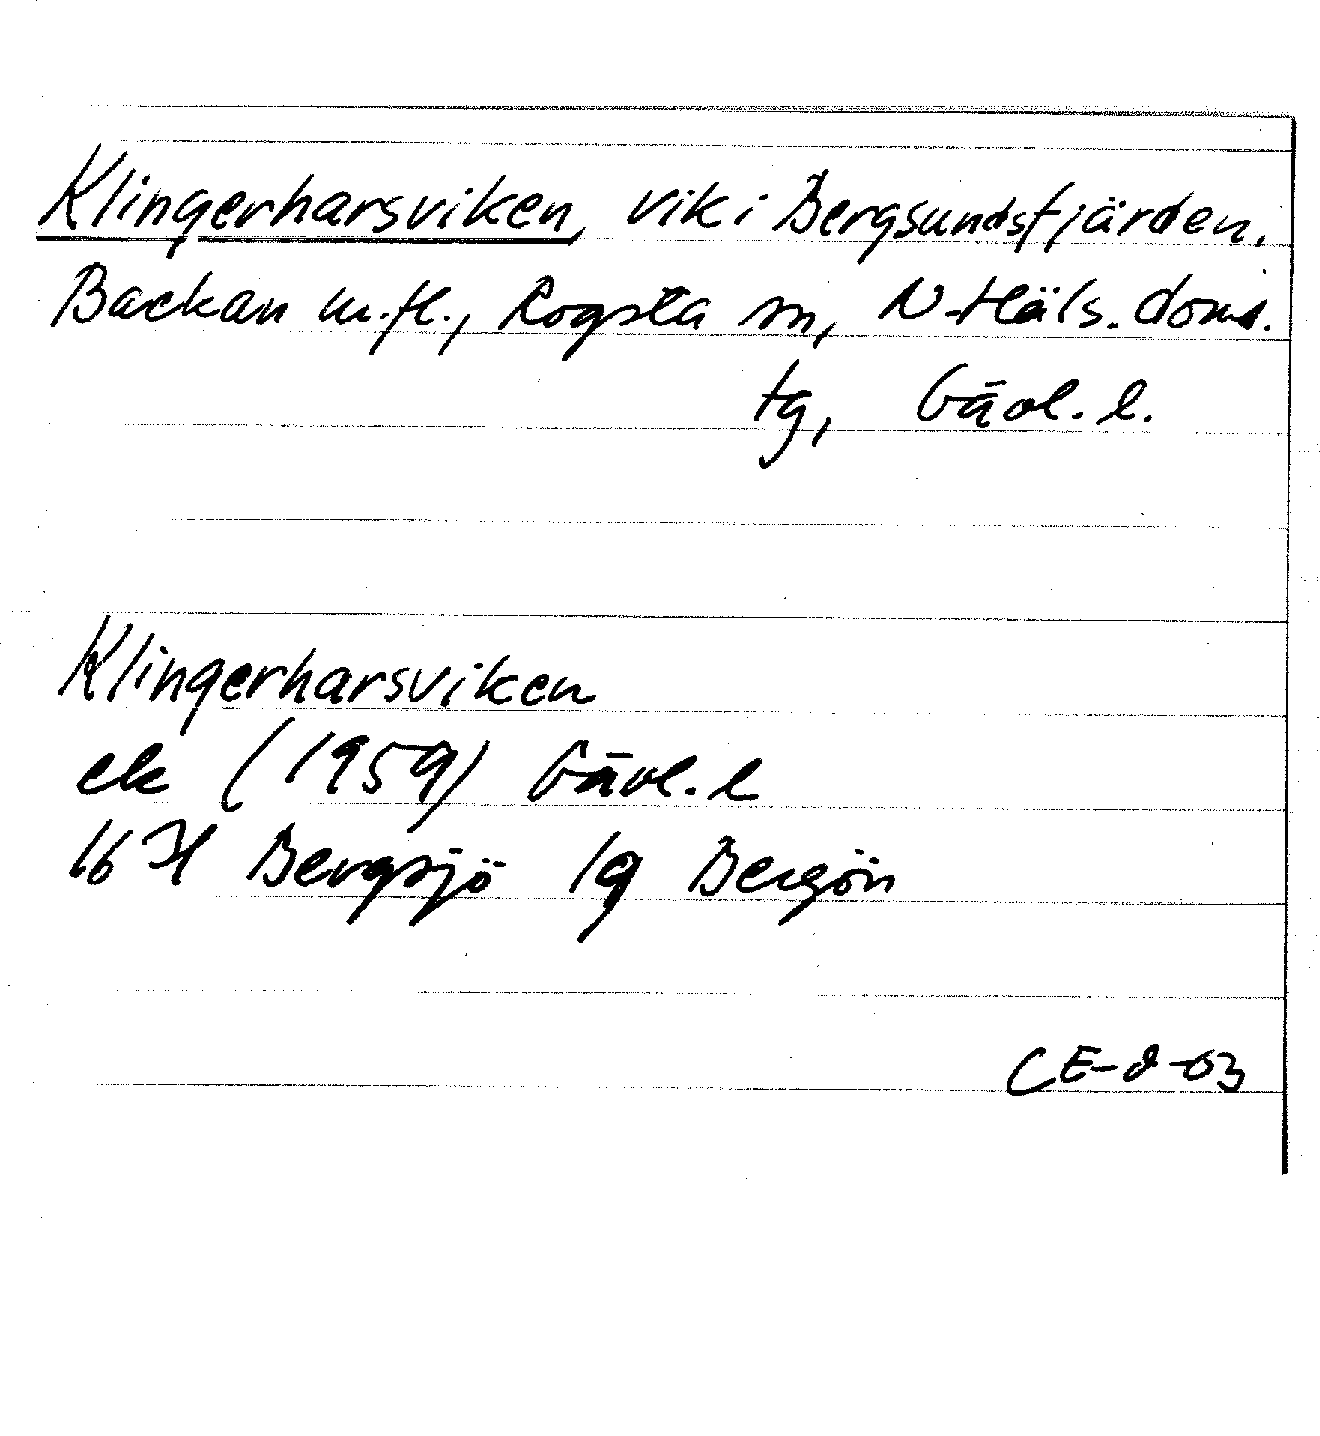 Klingerharsviken, vik i Bergsundsfjärden,
Backan m.fl., Rogsta sn, N Häls. doms.
tg, Gävl. l.
Klingerharsviken
ek (1959) Gävl. l
16 H Bergsjö 1g Bergön
CE-8-03